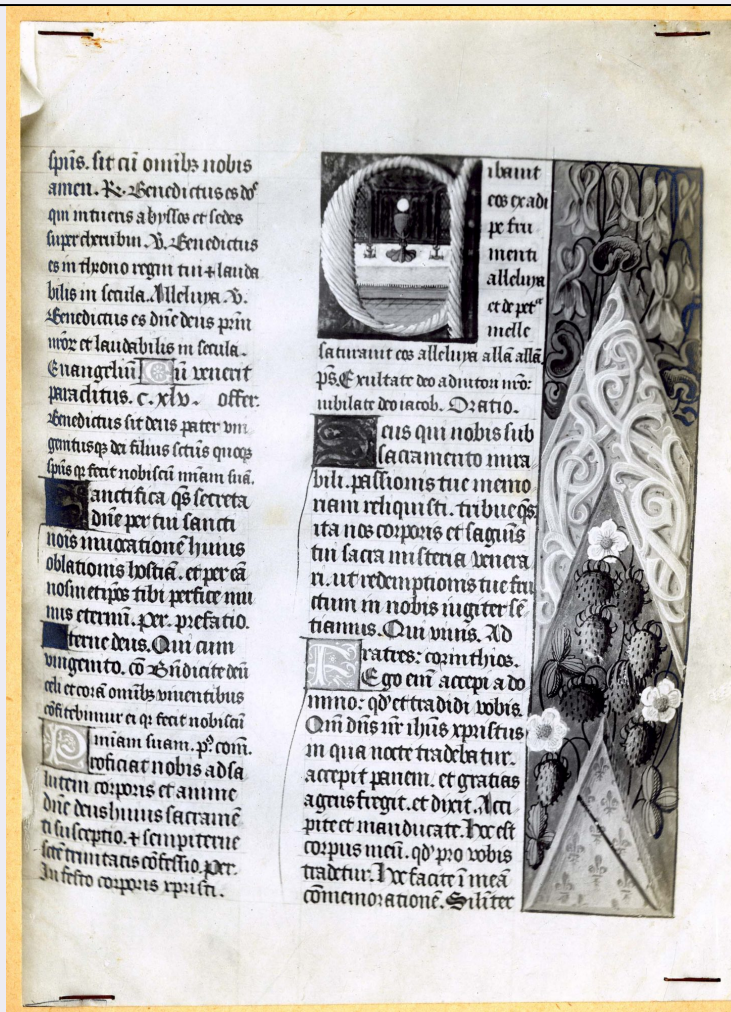 sp̄us. sit cū omībꝫ nobis
amen. R. Benedictus es dn̄e
qui intueris abyssos et sedes
super cherubin. V. Benedictus
es in throno regni tui + lauda
bilis in secula. Alleluya. V.
Benedictus es dn̄e deus patrū
nr̄or et laudabilis in secula.
Euangeliū Cū venerit
paraclitus. c. xlv. offer.
Benedictus sit deus pater vni
genitusqꝫ dei filius sctūs quoqꝫ
spūs qꝫ fecit nobiscū miā̄m suā.
Sanctifica qs̄ secreta
dn̄e per tui sancti
nois inuocationē huius
oblationis hostiā. et per eā
nosmetip̄os tibi perfice mu
nus eternū. per. prefatio.
Eterne deus. Qui cum
vnigenito. cō Bn̄dicite deū
celi et corā omībꝫ viuentibus
cōfitebimur ei qꝫ fecit nobiscū
miā̄m suam. p̄ꝰ com̄.
Proficiat nobis ad sa
lutem corporis et anime
dn̄e deus huius sacramē
ti susceptio. + sempiterne
scē̄ trinitatis cōfessio. per.
In festo corporis xpristi.
Cibauit
eos ex adi
pe fru
menti
alleluya
et de pet̄
melle
saturauit eos alleluya allā allā.
p̄s. Exultate deo adiutori nr̄o:
iubilate deo iacob. Oratio.
Deus qui nobis sub
sacramento mira
bili. passionis tue memo
riam reliquisti. tribue qs̄
ita nos corporis et sāguis
tui sacra misteria venera
ri. ut redemptionis tue fru
ctum in nobis iugiter sē
tiamus. Qui viuis. Ad
Fratres: corinthios.
Ego enī accepi a do
mino: qd̓ et tradidi vobis.
Qm̄ dn̄s nr̄ ihūs xpristus
in qua nocte tradebatur.
accepit panem. et gratias
agens fregit. et dixit. Acci
pite et manducate. Hoc est
corpus meū. qd̓ pro vobis
tradetur. Hoc facite ī meā
cōmemorationē. Silīter